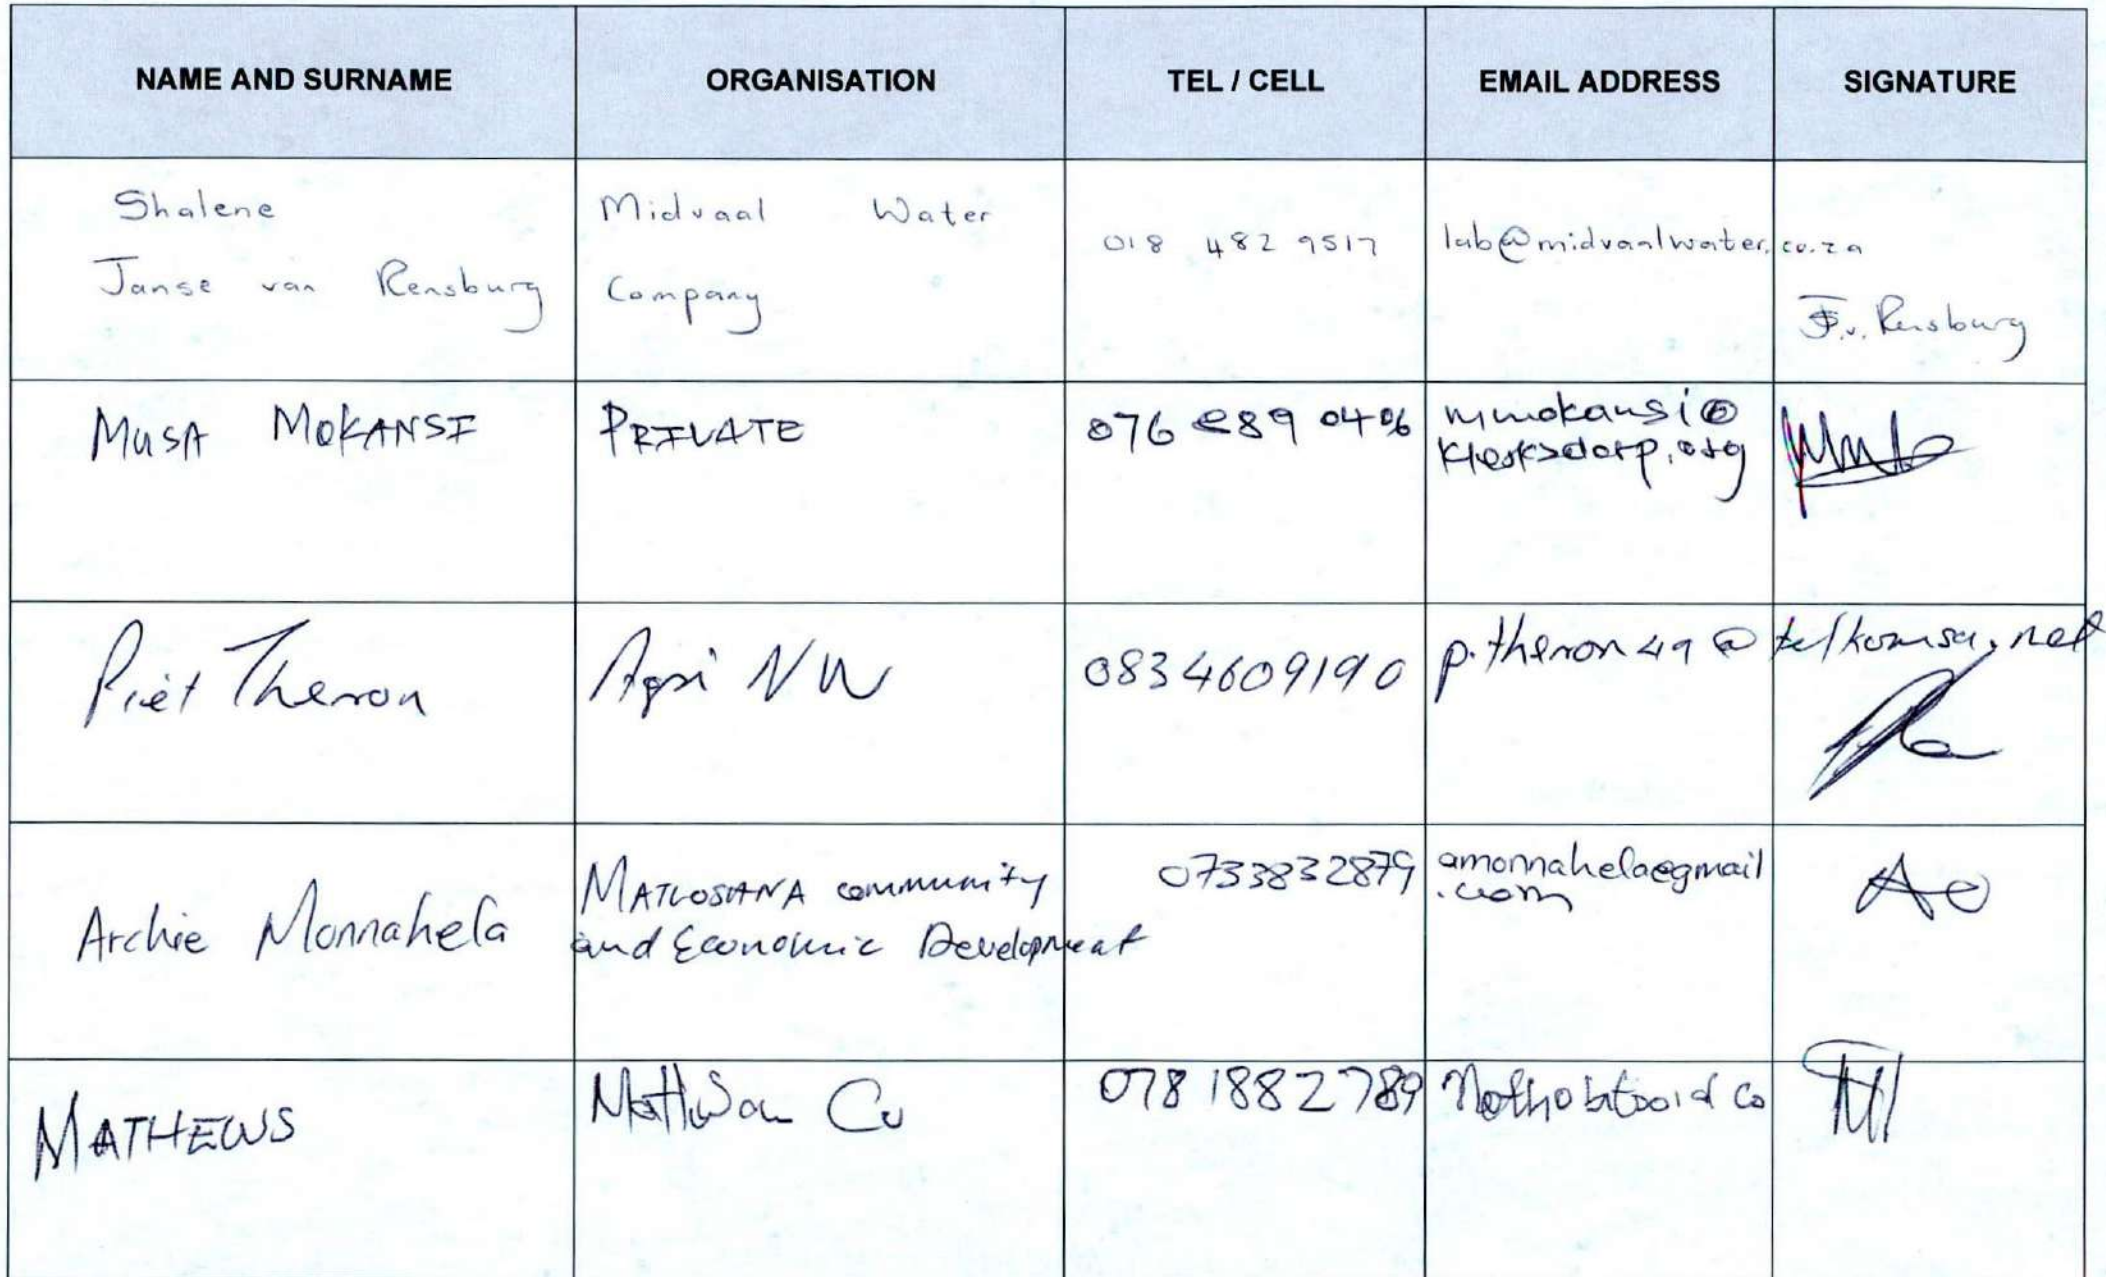 NAME AND SURNAME ORGANISATION TEL / CELL EMAIL ADDRESS SIGNATURE
Shalene
Janse van Rensburg
Midvaal Water
Company
018 482 9517
lab@midvaalwater.co.za
J.v. Rensburg
MUSA MOKANSI
PRIVATE
076 889 0406
mmokansi@
klerksdorp.org
Piet Theron
Agri NW
0834609190
p.theron49@telkomsa.net
Archie Monnahela
MATLOSANA community
and Economic Development
0733832879
amonnahela@gmail
.com
MATHEWS
Co
0781882789